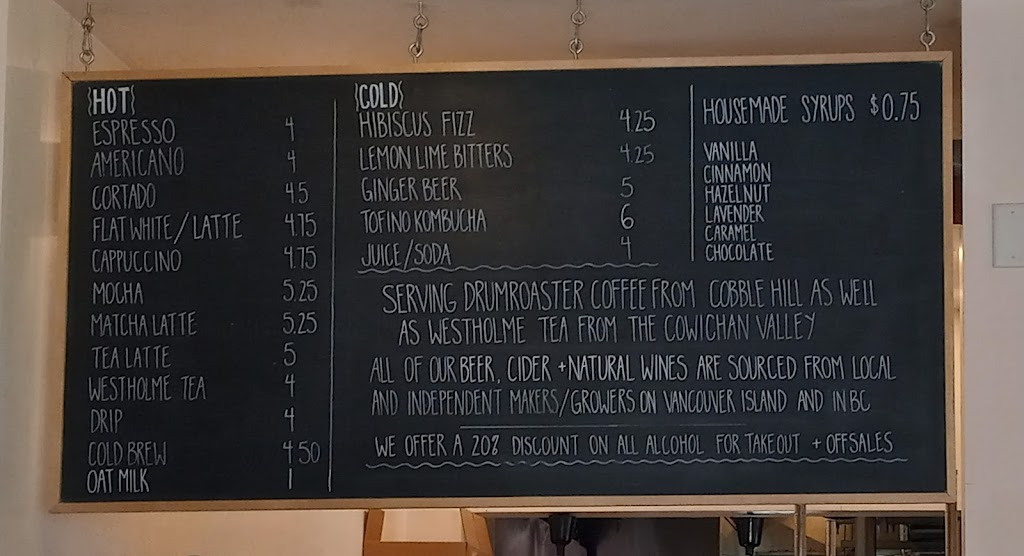 {HOT}
ESPRESSO 4
AMERICANO 4
CORTADO 4.5
FLAT WHITE / LATTE 4.75
CAPPUCCINO 4.75
MOCHA 5.25
MATCHA LATTE 5.25
TEA LATTE 5
WESTHOLME TEA 4
DRIP 4
COLD BREW 4.50
OAT MILK 1
{COLD}
HIBISCUS FIZZ 4.25
LEMON LIME BITTERS 4.25
GINGER BEER 5
TOFINO KOMBUCHA 6
JUICE/SODA 4
HOUSEMADE SYRUPS $0.75
VANILLA
CINNAMON
HAZELNUT
LAVENDER
CARAMEL
CHOCOLATE
SERVING DRUMROASTER COFFEE FROM COBBLE HILL AS WELL
AS WESTHOLME TEA FROM THE COWICHAN VALLEY
ALL OF OUR BEER, CIDER + NATURAL WINES ARE SOURCED FROM LOCAL
AND INDEPENDENT MAKERS/GROWERS ON VANCOUVER ISLAND AND IN BC
WE OFFER A 20% DISCOUNT ON ALL ALCOHOL FOR TAKEOUT + OFFSALES